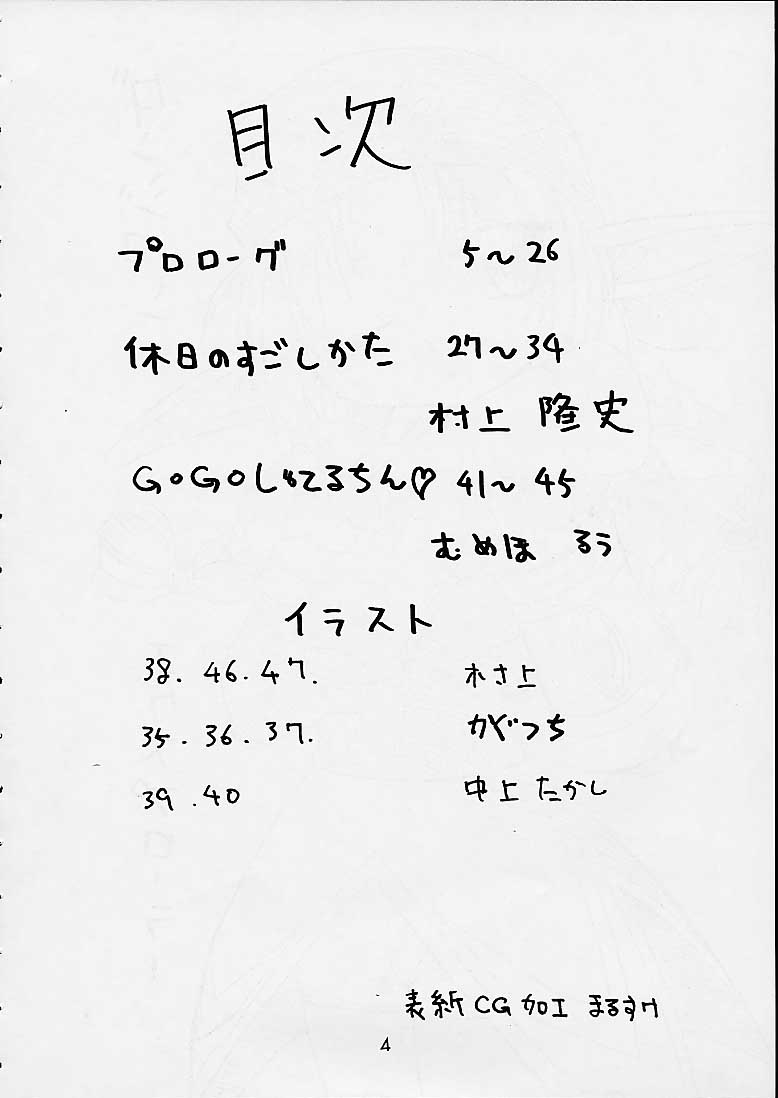 目次
プロローグ 5〜26
休日のすごしかた 27〜34
村上 隆史
GoGoしゅてるちん♡ 41〜45
むめほ るう
イラスト
38. 46. 47. 木さ上
35. 36. 37. かぐっち
39. 40 中上たかし
表紙CG加工 まるすけ
4